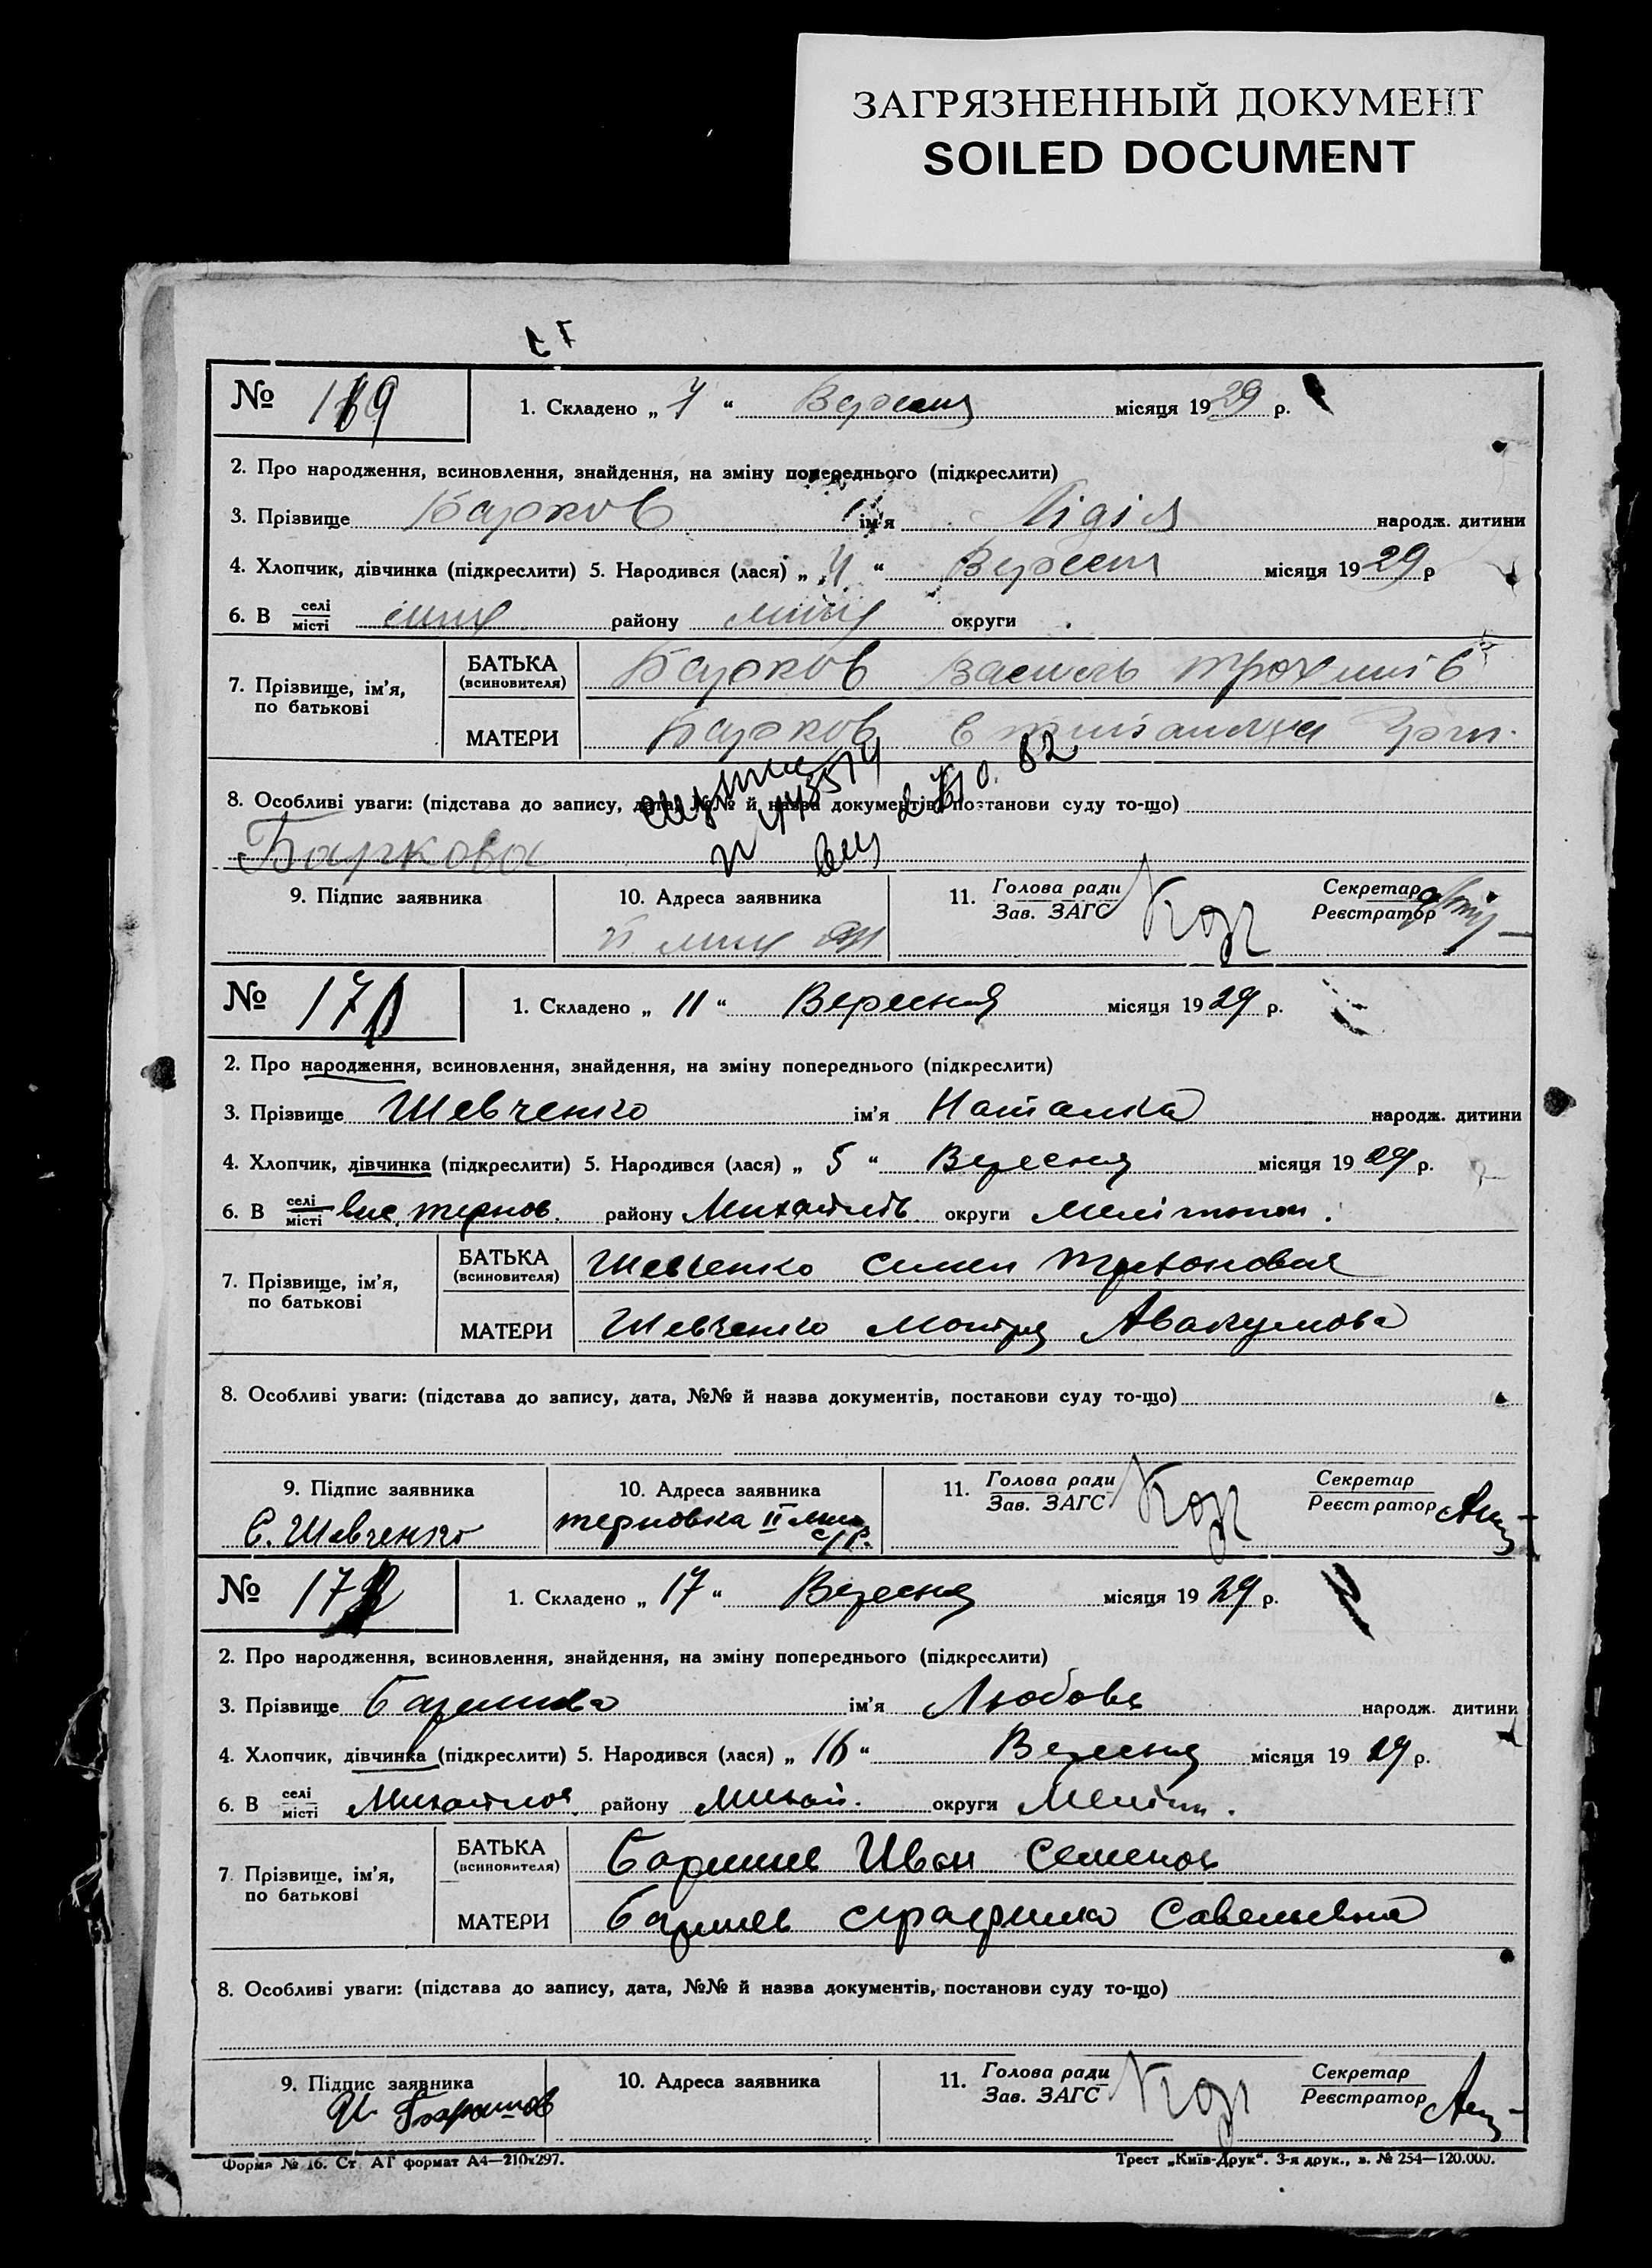 ЗАГРЯЗНЕННЫЙ ДОКУМЕНТ
SOILED DOCUMENT
№ 169 1. Складено „ 7 “ Вересня місяця 1929 р.
2. Про народження, всиновлення, знайдення, на зміну попереднього (підкреслити)
3. Прізвище Барков ім'я Лідія народж. дитини
4. Хлопчик, дівчинка (підкреслити) 5. Народився (лася) „ 4 “ Вересня місяця 1929 р
6. В селі місті району округи
7. Прізвище, ім'я, по батькові БАТЬКА (всиновителя) Барков Василь
МАТЕРИ Барков
8. Особливі уваги: (підстава до запису, дата, №№ й назва документів, постанови суду то-що)
Баркова
9. Підпис заявника 10. Адреса заявника 11. Голова ради Зав. ЗАГС Секретар Реєстратор
№ 17 1. Складено „ 11 “ Вересня місяця 1929 р.
2. Про народження, всиновлення, знайдення, на зміну попереднього (підкреслити)
3. Прізвище Шевченко ім'я Наталка народж. дитини
4. Хлопчик, дівчинка (підкреслити) 5. Народився (лася) „ 5 “ Вересня місяця 1929 р.
6. В селі місті вис. тернов. району Михайлів. округи Мелітопол.
7. Прізвище, ім'я, по батькові БАТЬКА (всиновителя) Шевченко Семен
МАТЕРИ Шевченко Мотря Авакумова
8. Особливі уваги: (підстава до запису, дата, №№ й назва документів, постанови суду то-що)
9. Підпис заявника 10. Адреса заявника 11. Голова ради Зав. ЗАГС Секретар Реєстратор
С. Шевченко терновка II с/р.
№ 17 1. Складено „ 17 “ Вересня місяця 1929 р.
2. Про народження, всиновлення, знайдення, на зміну попереднього (підкреслити)
3. Прізвище ім'я Любовь народж. дитини
4. Хлопчик, дівчинка (підкреслити) 5. Народився (лася) „ 16 “ Вересня місяця 1929 р.
6. В селі місті Михайлов. району Михай. округи Меліт.
7. Прізвище, ім'я, по батькові БАТЬКА (всиновителя) Иван Семенов
МАТЕРИ Савельевна
8. Особливі уваги: (підстава до запису, дата, №№ й назва документів, постанови суду то-що)
9. Підпис заявника 10. Адреса заявника 11. Голова ради Зав. ЗАГС Секретар Реєстратор
Форма № 16. Ст. АГ формат А4—210х297. Трест „Київ-Друк“. 3-я друк., з. № 254—120.000.